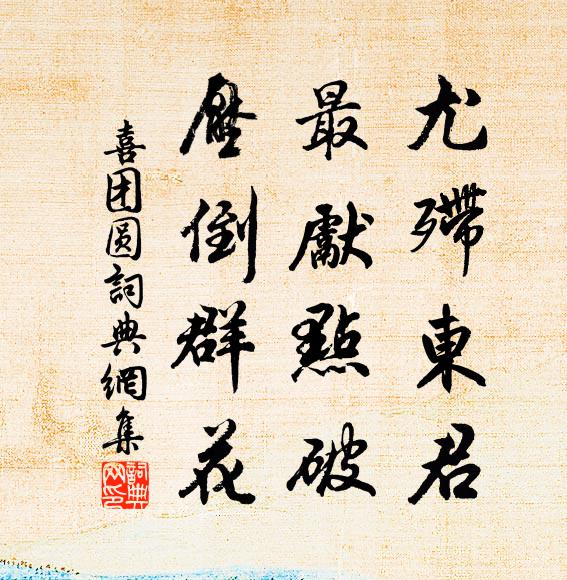 尤殢東君
最獻點破
壓倒群花
喜团圆詞典網集
詞典网印